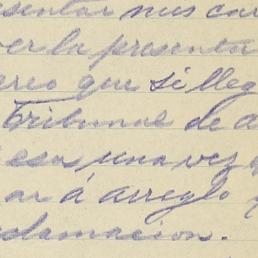 esentar mis car
ver la presenta
creo que si lleg
Tribunal de a
esa una vez
ar á arreglo
clamacion.